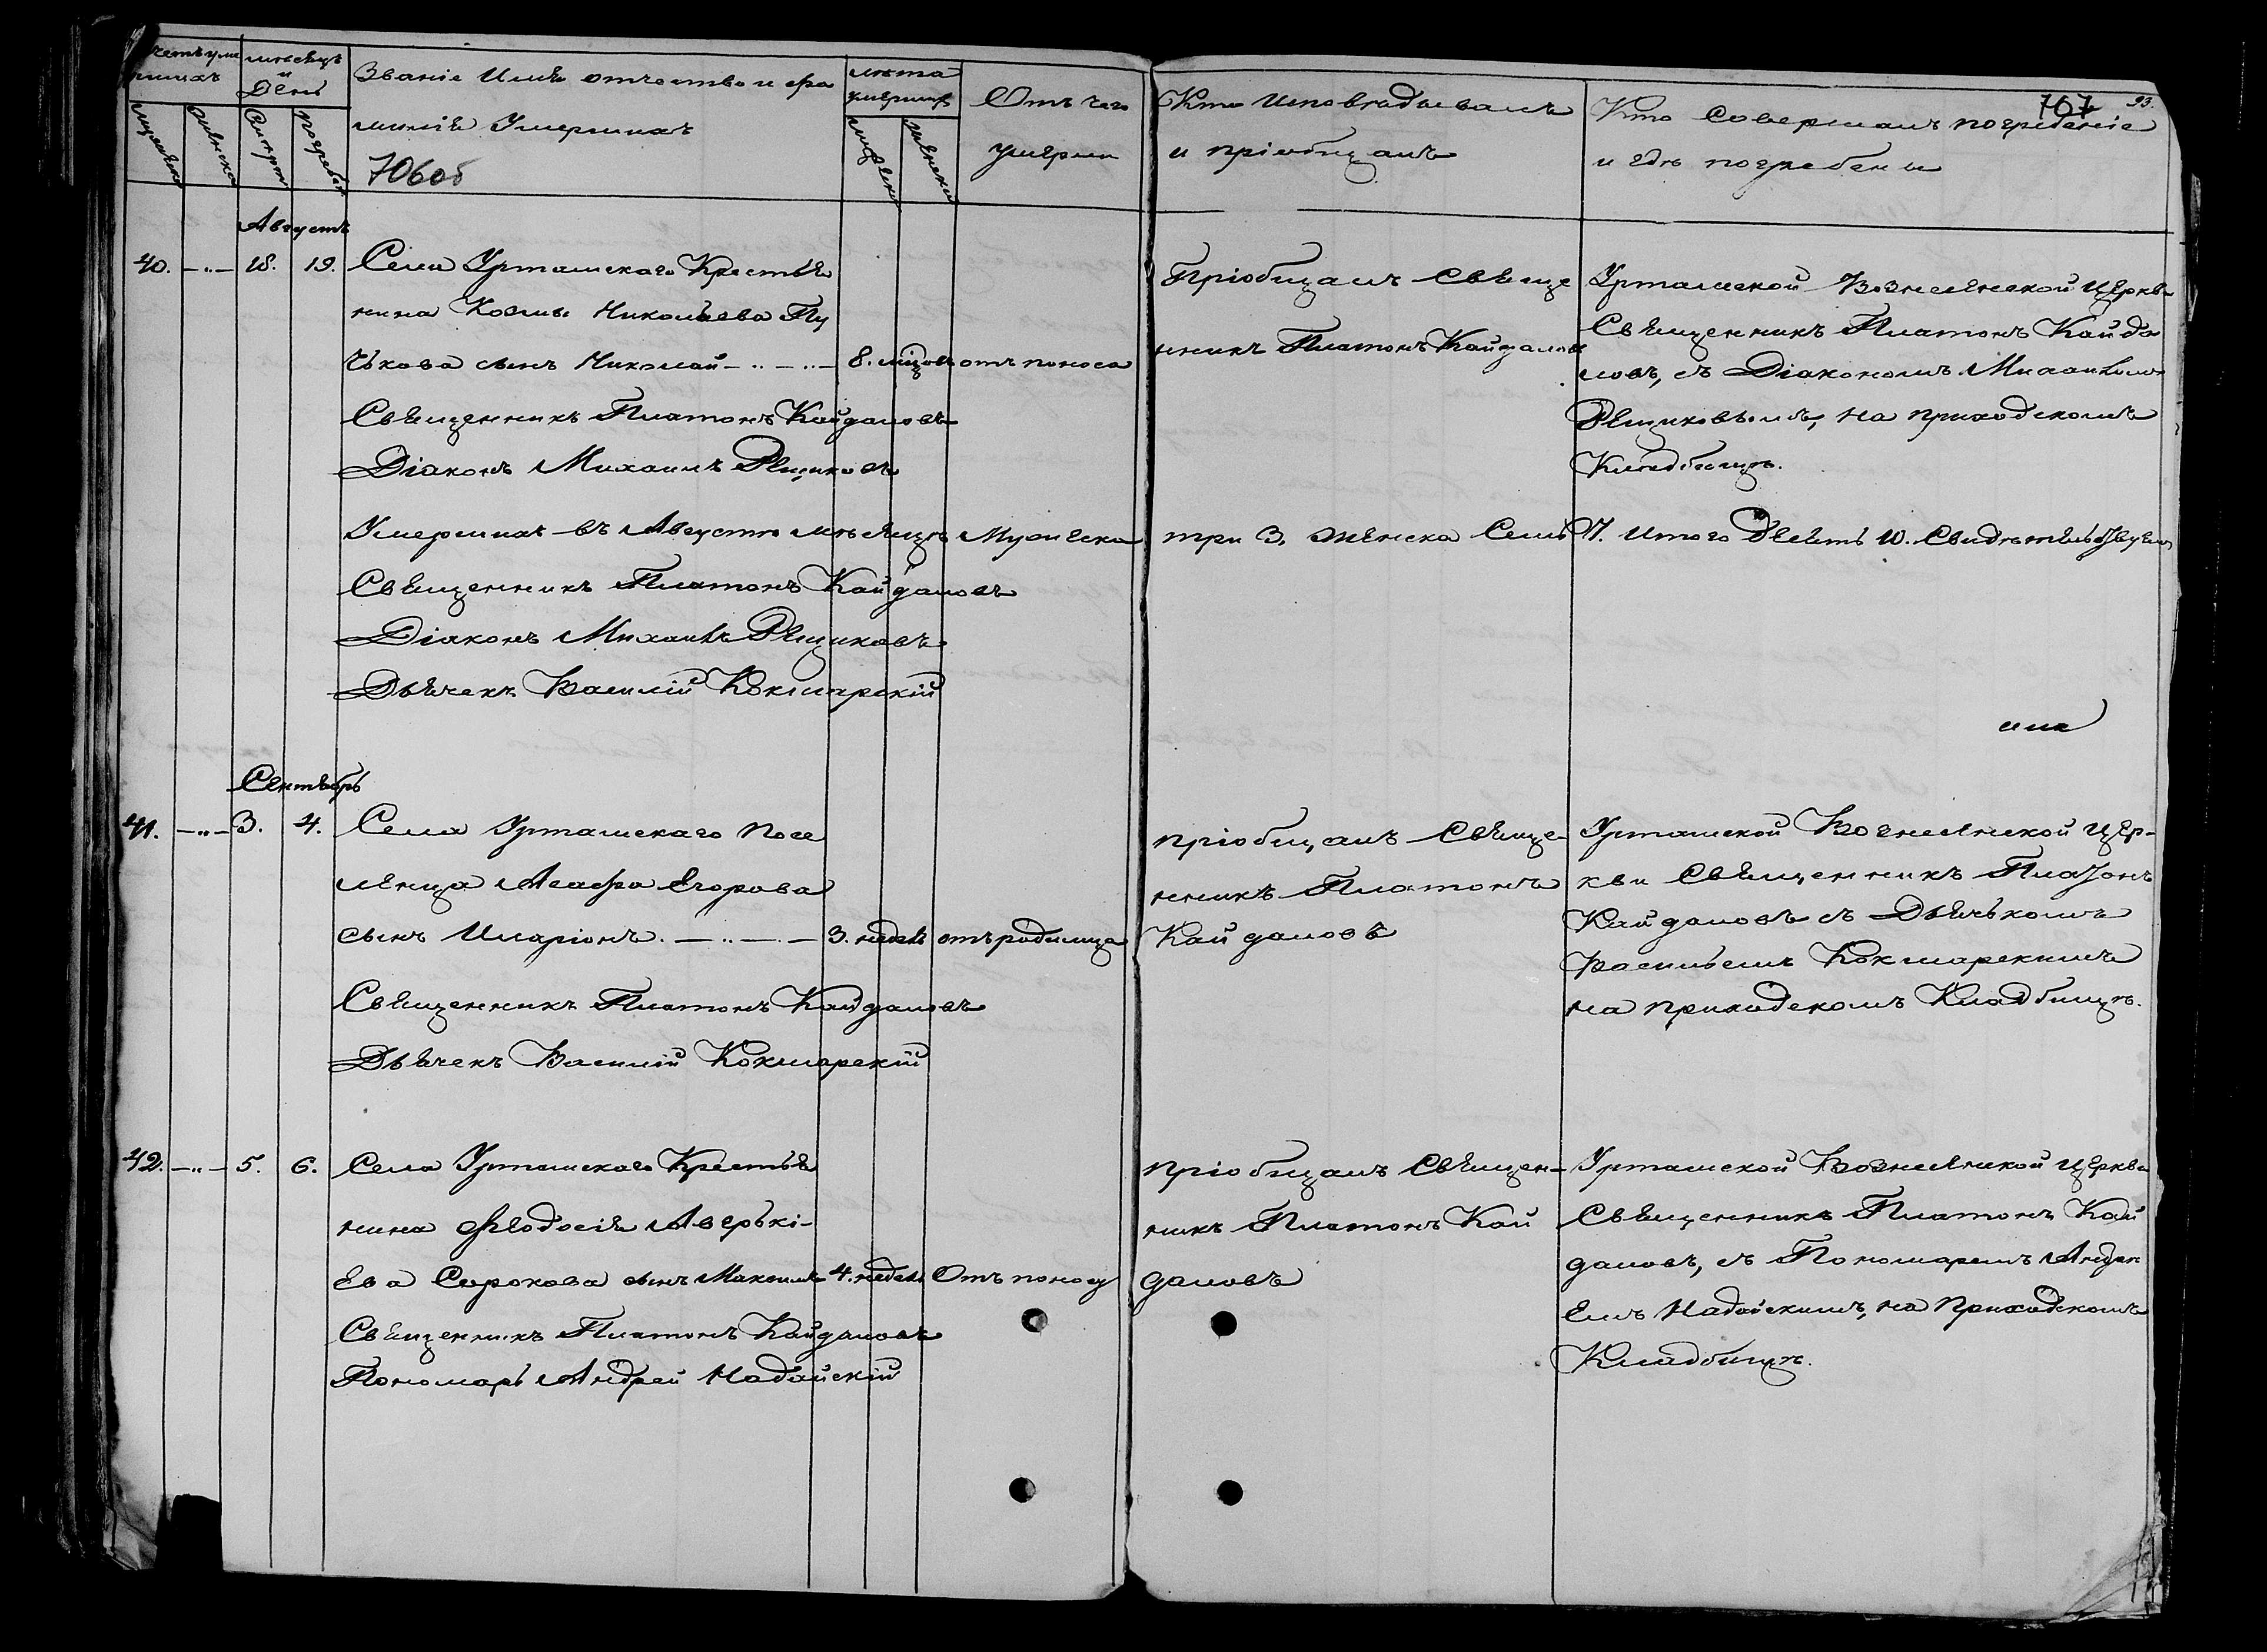 Счетъ уме
ршихъ
мѣсяцъ
и
День
Званіе Имя отчество и фа
миліе Умершихъ
706об
лѣта
умерших
Отъ чего
умерли
мужеска
женска
Смерти
погребен
мужескаго
женскаго
Кто Исповѣдывалъ
и пріобщалъ
Кто Совершалъ погребеніе
и гдѣ погребены
707
93.
Августъ
40. —..— 18. 19. Села Урташскаго Крестья
нина Козмы Николаева Пу
чкова сынъ Николай —..—..— 8. мѣсцовъ отъ поноса
Священникъ Платонъ Кайдаловъ
Діаконъ Михаилъ Рещиковъ
Пріобщалъ Свяще
нникъ Платонъ Кайдаловъ
Урташской Вознесенской Церкви
Священникъ Платонъ Кайда
ловъ, съ Діакономъ Михаиломъ
Рещиковымъ, на приходскомъ
Кладбищѣ.
Умершихъ въ Августѣ мѣсяцѣ Мужеска три 3. Женска Семь 7. Итого Десять 10. Свидѣтельствуемъ
Священникъ Платонъ Кайдаловъ
Діаконъ Михаилъ Рещиковъ
Дьячекъ Василій Кокшарскій
Сентябрь
41. —..— 3. 4. Села Урташскаго Посе
ленца Асафа Егорова
сынъ Иларіонъ. —..—.— 3. недѣл отъ родимца
Священникъ Платонъ Кайдаловъ
Дьячекъ Василій Кокшарскій
пріобщалъ Свяще-
нникъ Платонъ
Кайдаловъ
Урташской Вознесенской Цер-
кви Священникъ Платонъ
Кайдаловъ съ Дьячькомъ
Васильемъ Кокшарскимъ
на приходскомъ Кладбищѣ.
42. —..— 5. 6. Села Урташскаго Крестья
нина Феодосія Аверькі-
ева Сорокова сынъ Максимъ 4. недѣл Отъ поносу
Священникъ Платонъ Кайдаловъ
Пономарь Андрей Надайскій
пріобщалъ Священ-
никъ Платонъ Кай
даловъ
Урташской Вознесенской Церкви
Священникъ Платонъ Кай
даловъ, съ Пономаремъ Андре
емъ Надайскимъ, на Приходскомъ
Кладбищѣ.